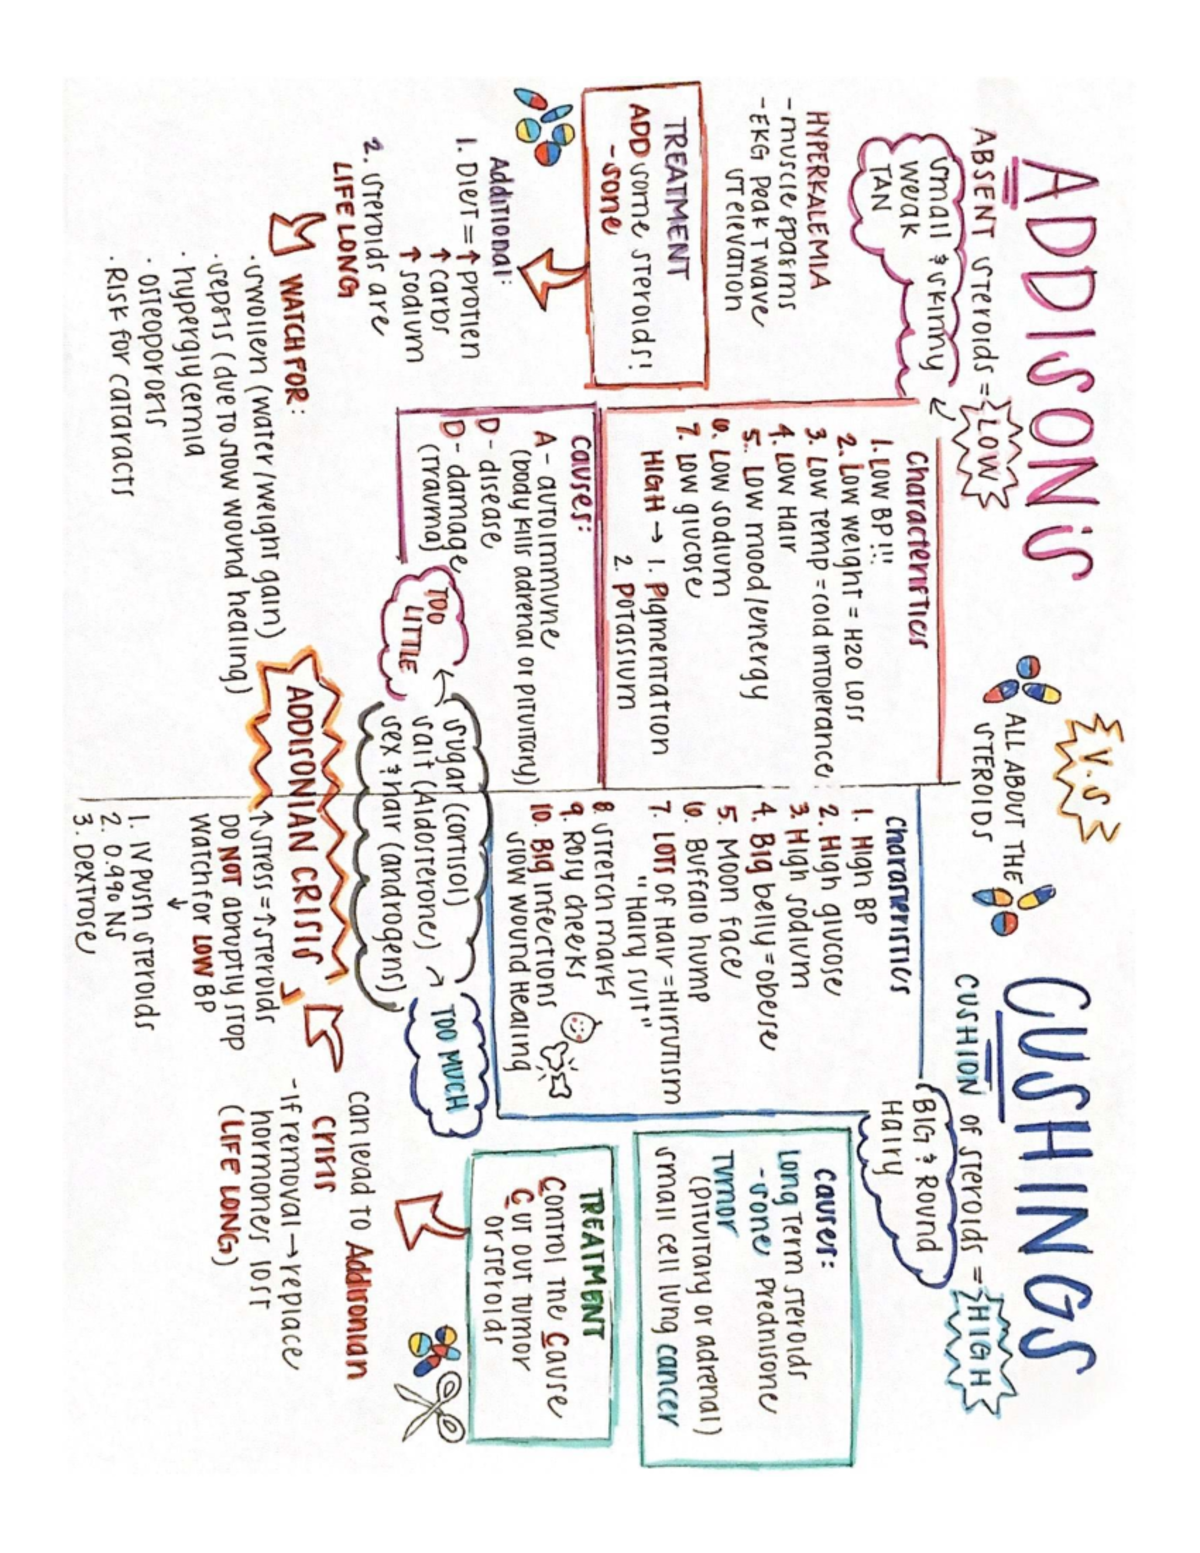 ADDISON'S
V.S
CUSHINGS
ABSENT STEROIDS = LOW
small & skinny
weak
TAN
ALL ABOUT THE
STEROIDS
CUSHION OF STEROIDS = HIGH
BIG & ROUND
Hairy
HYPERKALEMIA
- muscle spasms
- EKG Peak T wave
ST elevation
TREATMENT
ADD some steroids!
- sone
Additional:
1. DIET = ↑ protien
↑ carbs
↑ sodium
2. Steroids are
LIFE LONG
WATCH FOR:
· swollen (water/weight gain)
· sepsis (due to slow wound healing)
· hyperglycemia
· osteoporosis
· Risk for cataracts
Characteristics
1. LOW BP!!!
2. LOW weight = H2O LOSS
3. LOW temp = cold intolerance
4. LOW Hair
5. LOW mood/energy
6. LOW sodium
7. LOW glucose
HIGH → 1. Pigmentation
2. POTASSIUM
causes:
A - autoimmune
(body kills adrenal or pituitary)
D - disease
D - damage
(Trauma)
TOO
LITTLE
sugar (cortisol)
salt (Aldosterone)
sex & hair (androgens)
TOO MUCH
Charaseristics
1. High BP
2. High glucose
3. High sodium
4. Big belly = obese
5. Moon face
6. Buffalo hump
7. LOTS of Hair = Hirsutism
"Hairy suit"
8 stretch marks
9. Rosy cheeks
10. Big infections
slow wound Healing
causes:
Long Term steroids
- sone prednisone
Tumor
(pituitary or adrenal)
small cell lung cancer
TREATMENT
Control the Cause
Cut out tumor
or steroids
can lead to Addisonian
crisis
- If removal → replace
hormones lost
(LIFE LONG)
ADDISONIAN CRISIS
↑ stress = ↑ steroids
DO NOT abruptly stop
watch for LOW BP
↓
1. IV push steroids
2. 0.9% NS
3. Dextrose